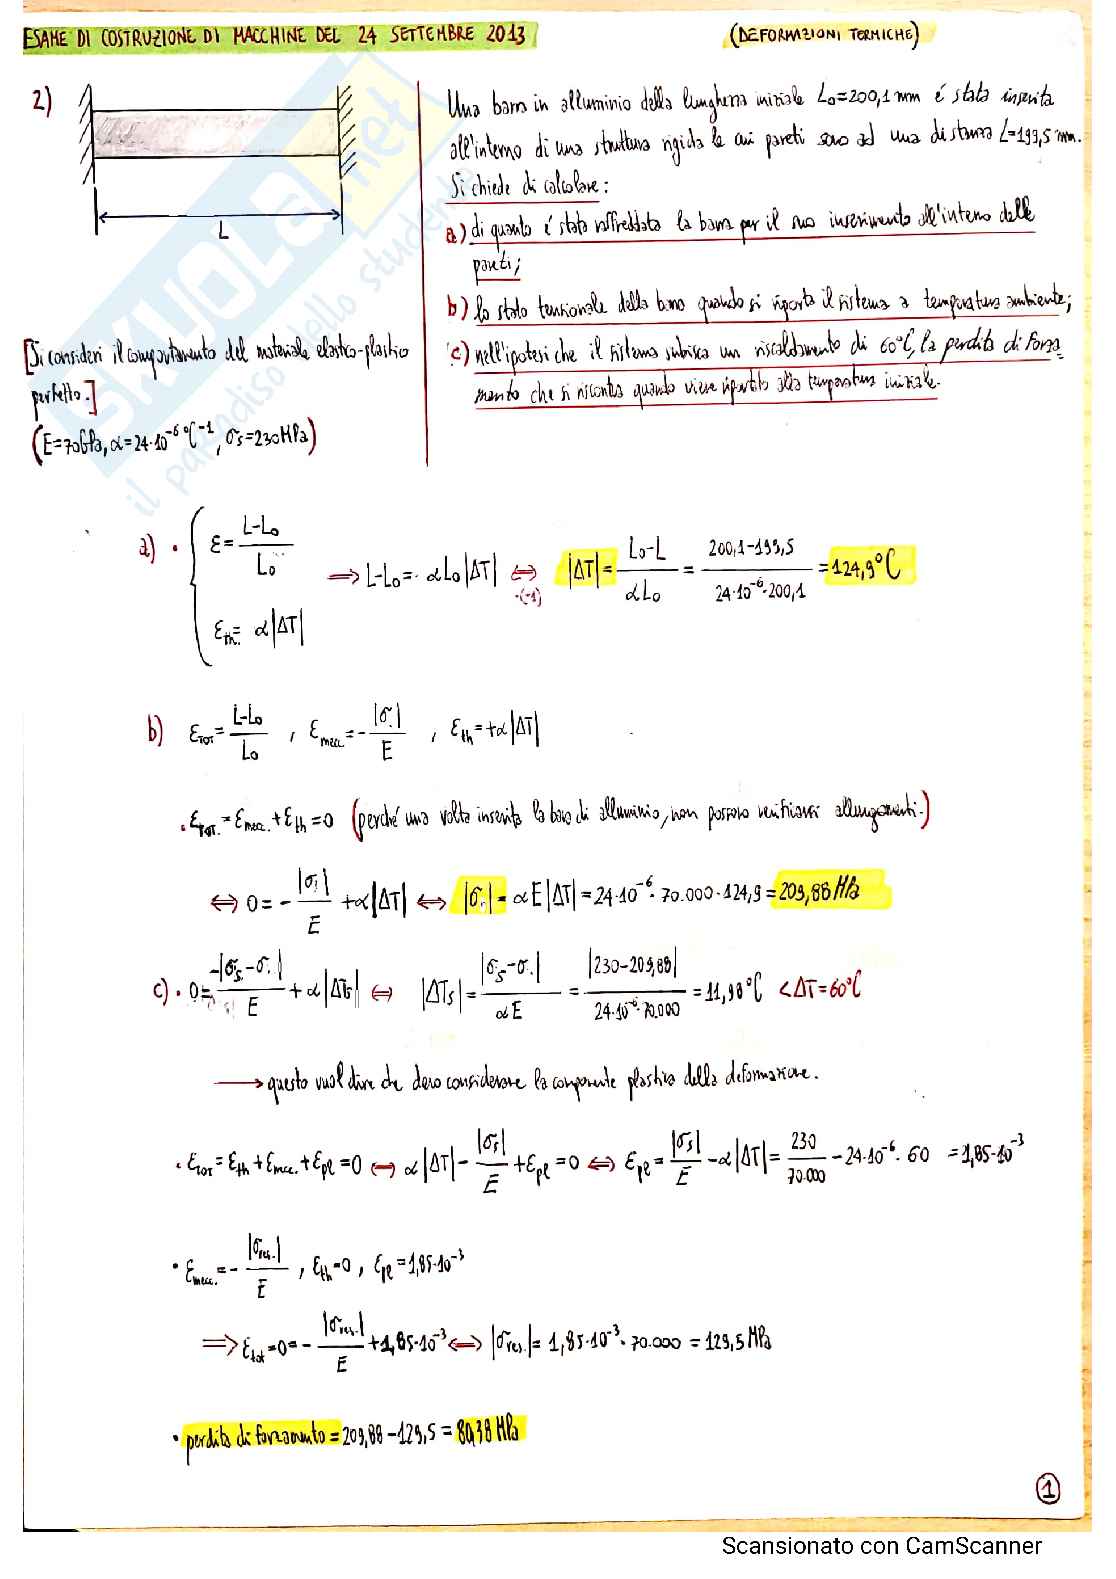 ESAME DI COSTRUZIONE DI MACCHINE DEL 24 SETTEMBRE 2013
(DEFORMAZIONI TERMICHE)
2)
L
Una barra in alluminio della lunghezza iniziale L₀=200,1 mm é stata inserita
all'interno di una struttura rigida le cui pareti sono ad una distanza L=199,5 mm.
Si chiede di calcolare:
a) di quanto é stata raffreddata la barra per il suo inserimento all'interno delle
pareti;
b) lo stato tensionale della barra quando si riporta il sistema a temperatura ambiente;
c) nell'ipotesi che il sistema subisca un riscaldamento di 60°C, la perdita di forza-
mento che si riscontra quando viene riportato alla temperatura iniziale.
[Si consideri il comportamento del materiale elastico-plastico
perfetto.]
(E=70GPa, α=24·10⁻⁶ °C⁻¹, σs=230MPa)
SKUOLA.net
il paradiso dello studente
a) • { ε = (L-L₀)/L₀ ; ε_th = α|ΔT| ⟹ L-L₀ = - αL₀|ΔT| ⟺ ·(-1) |ΔT| = (L₀-L)/(αL₀) = (200,1-199,5)/(24·10⁻⁶·200,1) = 124,9°C
b) ε_TOT = (L-L₀)/L₀ , ε_mecc. = -|σ.|/E , ε_th = +α|ΔT|
• ε_TOT. = ε_mecc. + ε_th = 0 (perché una volta inserita la barra di alluminio, non possono verificarsi allungamenti.)
⟺ 0 = -|σ.|/E + α|ΔT| ⟺ |σ.| = αE|ΔT| = 24·10⁻⁶·70.000·124,9 = 209,88 MPa
c) • 0 = -|σs-σ.|/E + α|ΔTs| ⟺ |ΔTs| = |σs-σ.|/(αE) = |230-209,88|/(24·10⁻⁶·70.000) = 11,98°C < ΔT=60°C
⟶ questo vuol dire che devo considerare la componente plastica della deformazione.
• ε_TOT = ε_th + ε_mecc. + ε_pl = 0 ⟺ α|ΔT| - |σs|/E + ε_pl = 0 ⟺ ε_pl = |σs|/E - α|ΔT| = 230/70.000 - 24·10⁻⁶·60 = 1,85·10⁻³
• ε_mecc. = -|σres.|/E , ε_th = 0 , ε_pl = 1,85·10⁻³
⟹ ε_tot = 0 = -|σres.|/E + 1,85·10⁻³ ⟺ |σres.| = 1,85·10⁻³·70.000 = 129,5 MPa
• perdita di forzamento = 209,88 - 129,5 = 80,38 MPa
1
Scansionato con CamScanner